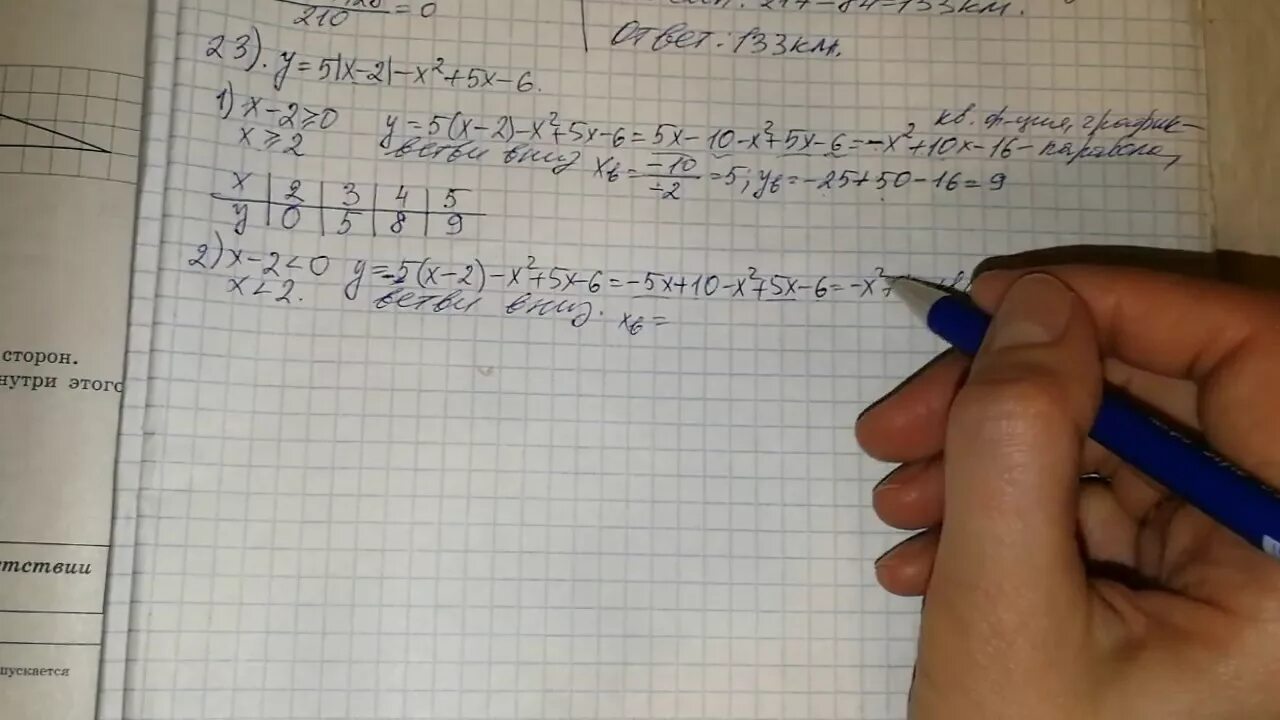 210 = 0
Ответ: 133км.
23). y=5|x-2|-x²+5x-6.
1) x-2≥0
x≥2
y=5(x-2)-x²+5x-6=5x-10-x²+5x-6=-x²+10x-16-парабола,
кв. ф-ция, график-
ветви вниз xв=-10/-2=5; yв=-25+50-16=9
x 2 3 4 5
y 0 5 8 9
2) x-2<0 y=-5(x-2)-x²+5x-6=-5x+10-x²+5x-6=-x²+
x<2. ветви вниз. xв=
сторон.
нутри этого
тствии
пускается